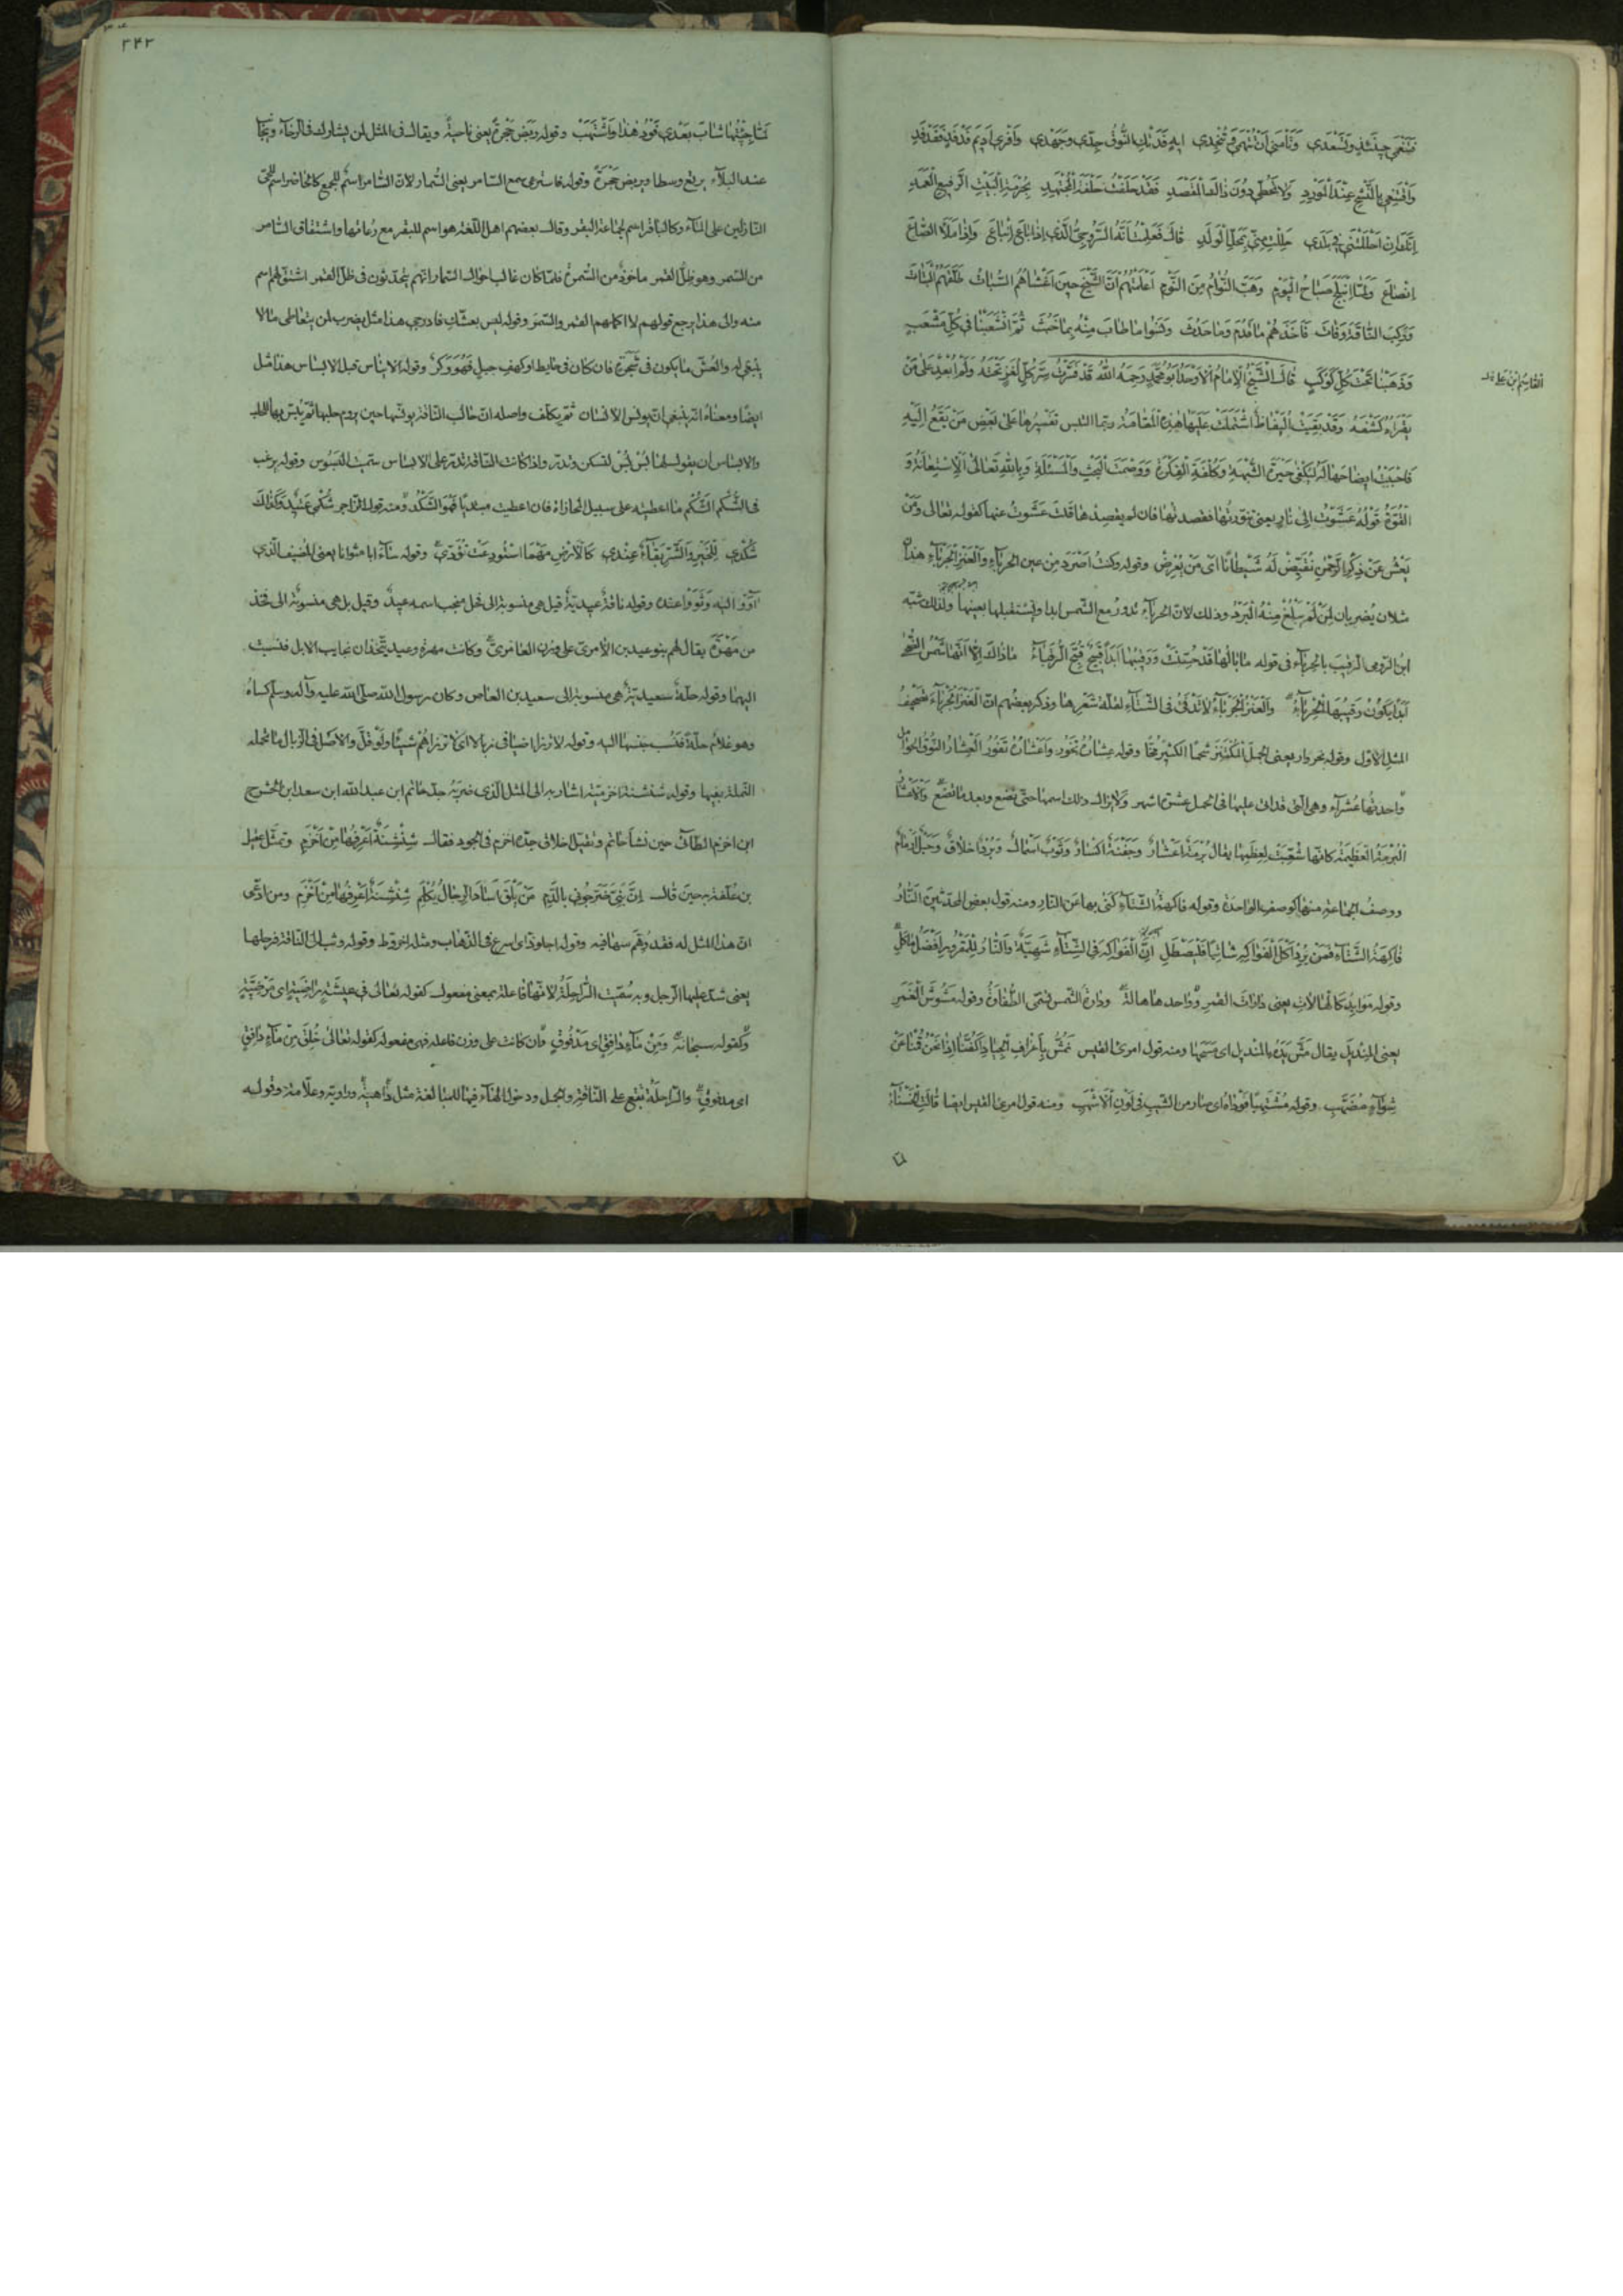 فتنعمي حينئذ وتسعدي وتأمني أن تتهمي وتنجدي ايه فدتك النوق جدّي وجهدي وافري أديم فدفد ففدفد
واقتنعي بالنشح عند المورد ولا تحطي دون ذاك المقصد فقد حلفت حلفة المجتهد بحرمة البيت الرفيع العمد
إنك إن احللتني في بلدي حللت مني بمحل الولد قال فعلمت أنه السروجي الذي إذا باع انباع وإذا ملأ الصاع
انصاع ولما انبلج صباح اليوم وهب النوام من النوم أعلمتهم أن الشيخ حين أغشاهم السبات طلقهم البتات
وركب الناقة وفات فأخذهم ما قدم وما حدث ونسوا ما طاب منه بما خبث ثم انشعبنا في كل مشعب
وذهبنا تحت كل كوكب قال الشيخ الإمام الأوحد أبو محمد رحمه الله قد فسرت سر كل لغز تحته ولم أبعد على من
القاسم بن علي
يقراه كشفه وقد بقيت اليفاظ اشتملت عليها هذه المقامة ربما التبس تفسيرها على بعض من يقع إليه
فاحببت ايضاحها له ليكفى حيرة الشبهة وكلفة الفكرة ووصمة البحث والمسئلة وبالله تعالى الاستعانة و
القوة قوله عشوت إلى نار يعني تنورتها فقصدتها فان لم يقصدها قلت عشوت عنها كقوله تعالى ومن
يعش عن ذكر الرحمن نقيض له شيطانا اي من يعرض وقوله وكنت اصرد من عين الحرباء والعنز الجرباء هذا
مثلان يضربان لمن لم يبلغ منه البرد وذلك لان الحرباء تدور مع الشمس ابدا وتستقبلها بعينها ولذلك شبه
ابن الرومي الرقيب بالحرباء في قوله ما بالها قد حسنت ورقيبها ابدا قبيح قبح الرقباء ما ذاك إلا انها شمس الضحى
ابدا يكون رقيبها الحرباء والعنز الجرباء لا تدفئ في الشتاء لقلة شعرها وذكر بعضهم ان العنز الجرباء تصحيف
المثل الاول وقوله نحر وار يعني الجمل المكتنز شحما الكثير مخا وقوله عشار تخور واعشار تفور العشار النوق الحوامل
واحدتها عشراء وهي التي قد اتى عليها في الحمل عشرة اشهر ولا يزال ذلك اسمها حتى تضع وبعد ما تضع والاعشار
البرمة العظيمة كانها شعبت لعظمها يقال برمة اعشار وجفنة اكسار وثوب اسمال وبرد اخلاق وحبل ارمام
ووصف الجماعة منها كوصف الواحدة وقوله فاكهة الشتاء كنى بها عن النار ومنه قول بعض المحدثين النار
فاكهة الشتاء فمن يرد اكل الفواكه شاتيا فليصطل ان الفواكه في الشتاء شهية والنار للمقرور افضل ماكل
وقوله موائد كالهالات يعني دارات القمر وواحدها هالة ودارة الشمس تسمى الطفاوة وقوله مشوش الغمر
يعني المنديل يقال مش يده بالمنديل اي مسحها ومنه قول امرئ القيس نمش باعراف الجياد اكفنا اذا نحن قمنا عن
شواء مضهب وقوله مشتهبا فوداه اي صار من الشيب في لون الاشهب ومنه قول امرئ القيس ايضا قالت الخنساء
٢٤٣
لما جئتها شاب بعدي فود هذا واشتهب وقوله ربض حجرة يعني ناحية ويقال في المثل لمن يشارك في الرخاء ويجا
عند البلاء يرتع وسطا ويربض حجرة وقوله فاسترعى سمع السامر يعني السمار لان السامر اسم للجمع كالحاضر اسم للحي
النازلين على الماء وكالباقر اسم لجماعة البقر وقال بعضهم اهل اللغة هو اسم للبقر مع رعاتها واشتقاق السامر
من السمر وهو ظل القمر ماخوذ من السمرة فلما كان غالب احوال السمار انهم يتحدثون في ظل القمر اشتق لهم اسم
منه والى هذا يرجع قولهم لا اكلمهم القمر والسمر وقوله ليس بعشك فادرجي هذا مثل يضرب لمن يتعاطى ما لا
ينبغي له والعش ما يكون في شجرة فان كان في حايط او كهف جبل فهو وكر وقوله الايناس قبل الابساس هذا مثل
ايضا ومعناه انه ينبغي ان يونس الانسان ثم يكلف واصله ان حالب الناقة يونسها حين يروم حلبها ثم يبس بها للحلب
والابساس ان يقول لها بس بس لتسكن وتدر واذا كانت الناقة تدر على الابساس سميت البسوس وقوله يرغب
في الشكم الشكم ما اعطيته على سبيل المجازاة فان اعطيت مبتديا فهو الشكد ومنه قول الراجز شكمي عتيد وكذلك
شكدي للخير والشر بقاء عندي كالارض مهما استودعت تؤدي وقوله ساء ابا مثوانا يعني المضيف الذي
آووا اليه وثووا عنده وقوله ناقة عيدية قيل هي منسوبة الى فحل منجب اسمه عيد وقيل بل هي منسوبة الى فخذ
من مهرة يقال لهم بنو عيد بن الآمري على وزن العامري وكانت مهرة وعيد يتخذان نجايب الابل فنسبت
اليهما وقوله حلة سعيدية هي منسوبة الى سعيد بن العاص وكان رسول الله صلى الله عليه وآله وسلم كساه
وهو غلام حلة فنسب جنسها اليه وقوله لا ترزا اضيافي زبالا اي لا ترزاهم شيئا ولو قل والاصل في الزبال ما تحمله
النملة بفيها وقوله شنشنة اخزمية اشار به الى المثل الذي ضربه جد حاتم ابن عبد الله ابن سعد ابن الحشرج
ابن اخزم الطائي حين نشأ حاتم وتقيل اخلاق جده اخزم في الجود فقال شنشنة اعرفها من اخزم وتمثل عقيل
بن علفة به حين قال ان بني ضرجوني بالدم من يلق آساد الرجال يكلم شنشنة اعرفها من اخزم ومن ادعى
ان هذا المثل له فقد وهم سها فيه وقوله اجلوذ اي اسرع في الذهاب ومثله اخروط وقوله وثب الى الناقة فرحلها
يعني شد عليها الرحل وبه سميت الراحلة لانها فاعلة بمعنى مفعول كقوله تعالى في عيشة راضية اي مرضية
وكقوله سبحانه ومن ماء دافق اي مدفوق وان كانت على وزن فاعله فهي مفعوله كقوله تعالى خلق من ماء دافق
اي مدفوق والراحلة تقع على الناقة والجمل ودخول الهاء فيها للمبالغة مثل داهية وراوية وعلامة وقوله